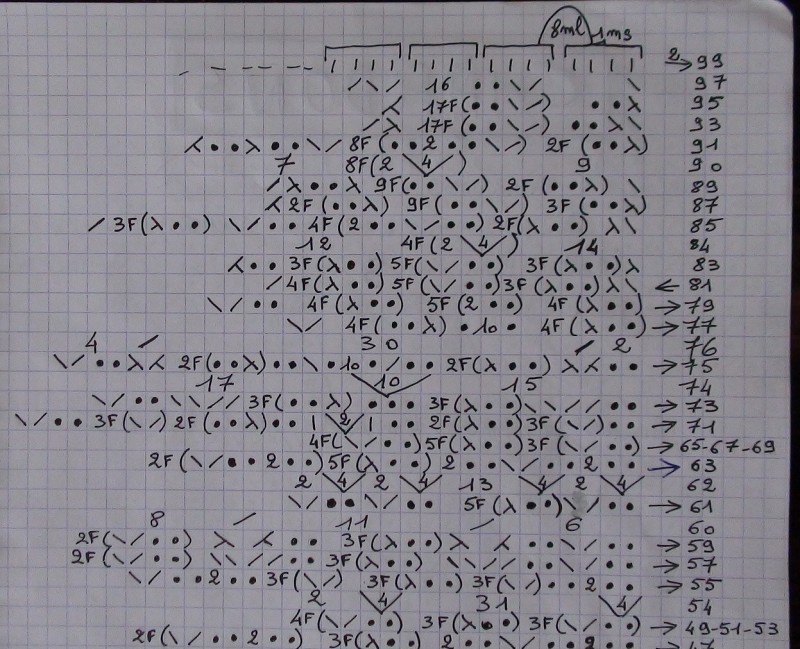 8ml 1ms
| | | | | | | | | | | | | | | | 2 → 99
/ \ / 16 • • \ / \ 97
⋌ 17F(• • \ /) • • λ 95
/ λ 17F(• • \ /) • • λ \ 93
⋌ • • λ • • \ / 8F(• • 2 • • \ /) 2F(• • λ) 91
7 8F(2 4) 9 90
/ λ • • λ 9F(• • \ /) 2F(• • λ) \ 89
⋌ 2F(• • λ) 9F(• • \ /) 3F(• • λ) 87
/ 3F(λ • •) \ / • • 4F(2 • • \ / • •) 2F(λ • •) λ \ 85
12 4F(2 4) 14 84
⋌ • • 3F(λ • •) 5F(\ / • •) 3F(λ • •) λ 83
/ 4F(λ • •) 5F(\ / • •) 3F(λ • •) λ \ ← 81
\ / • • 4F(λ • •) 5F(2 • •) 4F(λ • •) → 79
\ / 4F(• • λ) • 10 • 4F(λ • •) → 77
4 / 30 / 2 76
\ / • • λ ⋌ 2F(• • λ) • • \ • 10 • / • • 2F(λ • •) λ ⋌ • • → 75
17 10 15 74
\ / • • \ \ / / 3F(• • λ) • • • 3F(λ • •) \ \ / / • • → 73
\ / • • 3F(\ /) 2F(• • λ) • • | 2 | • • 2F(λ • •) 3F(\ /) • • → 71
4F(\ / • •) 5F(λ • •) 3F(\ / • •) → 65-67-69
2F(\ / • • 2 • •) 5F(λ • •) 2 • • \ / • • 2 • • → 63
2 4 2 4 13 4 2 4 62
\ / • • \ / • • 5F(λ • •) \ / • • → 61
8 / 11 / 6 60
2F(\ / • •) λ ⋌ • • 3F(λ • •) λ ⋌ • • \ / • • → 59
2F(\ / • •) \ \ / / • • 3F(λ • •) \ \ / / • • \ / • • → 57
\ / • • 2 • • 3F(\ /) 3F(λ • •) 3F(\ /) • • 2 • • → 55
2 4 31 4 54
4F(\ / • •) 3F(λ • •) 3F(\ / • •) → 49-51-53
2F(\ / • • 2 • •) 3F(λ • •) 2 • • \ / • • 2 • • 47